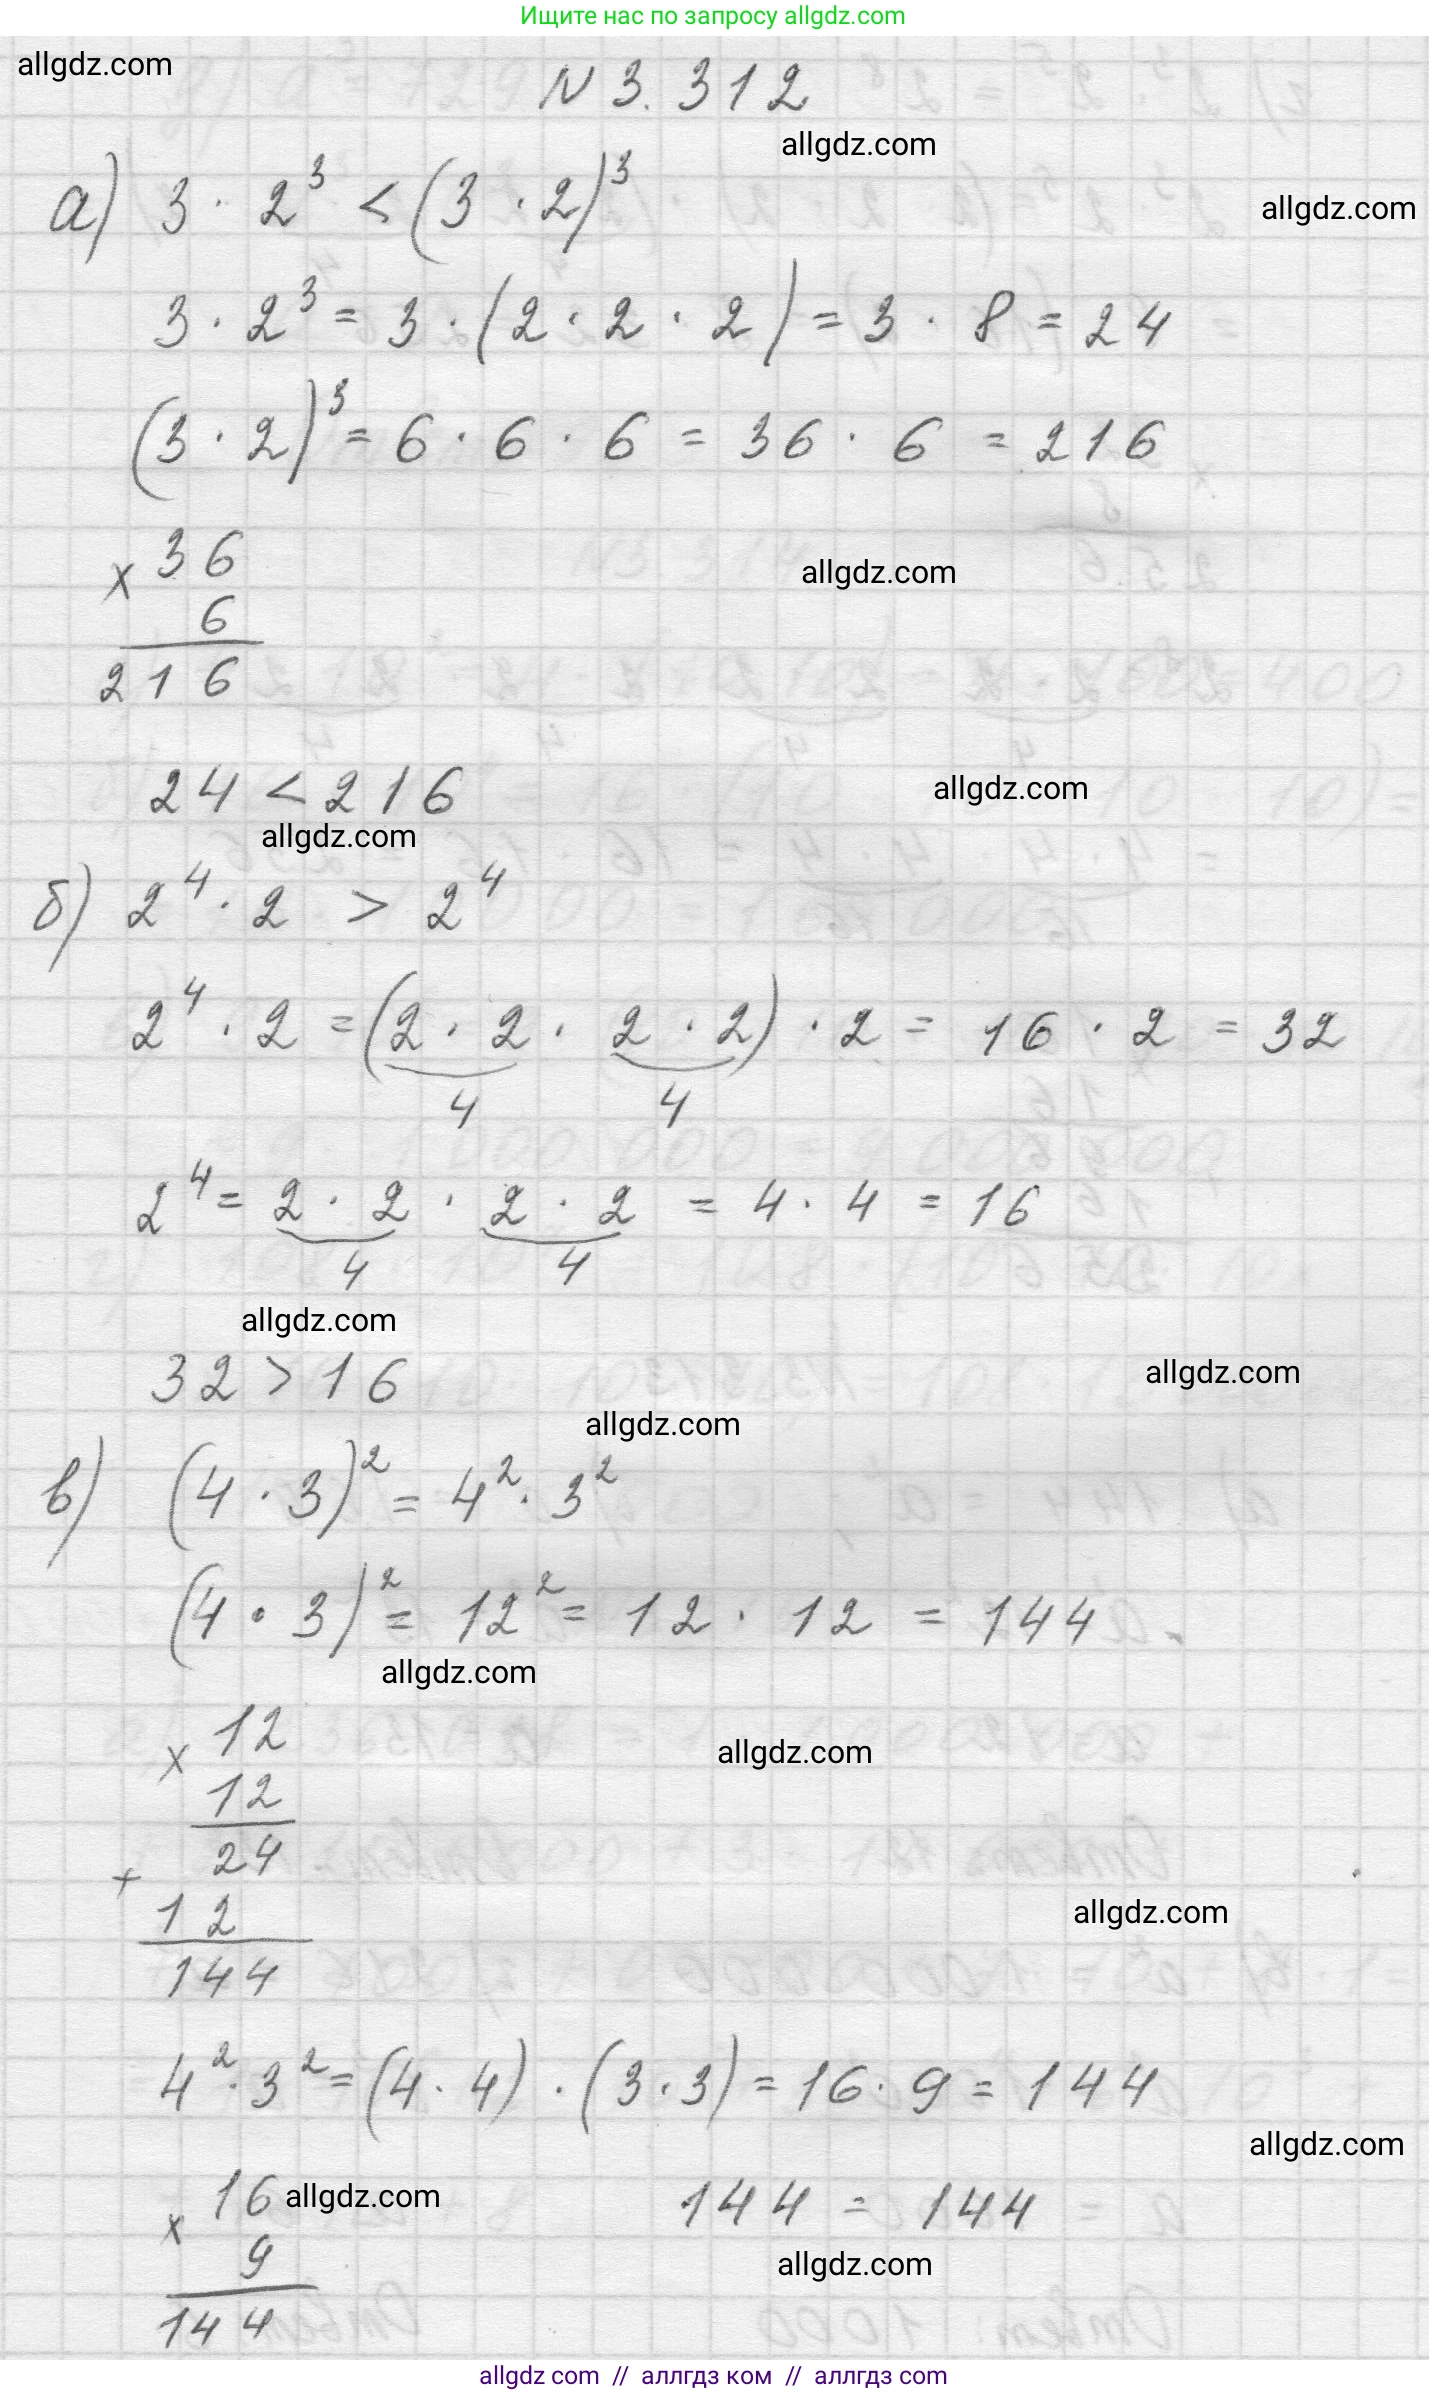 Ищите нас по запросу allgdz.com
allgdz.com
N 3.312
allgdz.com
а) 3 · 2³ < (3 · 2)³
allgdz.com
3 · 2³ = 3 · (2 · 2 · 2) = 3 · 8 = 24
(3 · 2)³ = 6 · 6 · 6 = 36 · 6 = 216
× 36
allgdz.com
6
216
24 < 216
allgdz.com
allgdz.com
б) 2⁴ · 2 > 2⁴
allgdz.com
2⁴ · 2 = (2 · 2 · 2 · 2) · 2 = 16 · 2 = 32
4 4
2⁴ = 2 · 2 · 2 · 2 = 4 · 4 = 16
4 4
allgdz.com
32 > 16
allgdz.com
allgdz.com
в) (4 · 3)² = 4² · 3²
(4 · 3)² = 12² = 12 · 12 = 144
allgdz.com
× 12
allgdz.com
12
24
+
12
allgdz.com
144
4² · 3² = (4 · 4) · (3 · 3) = 16 · 9 = 144
allgdz.com
× 16 allgdz.com 144 = 144
9
allgdz.com
144
allgdz com // аллгдз ком // аллгдз com